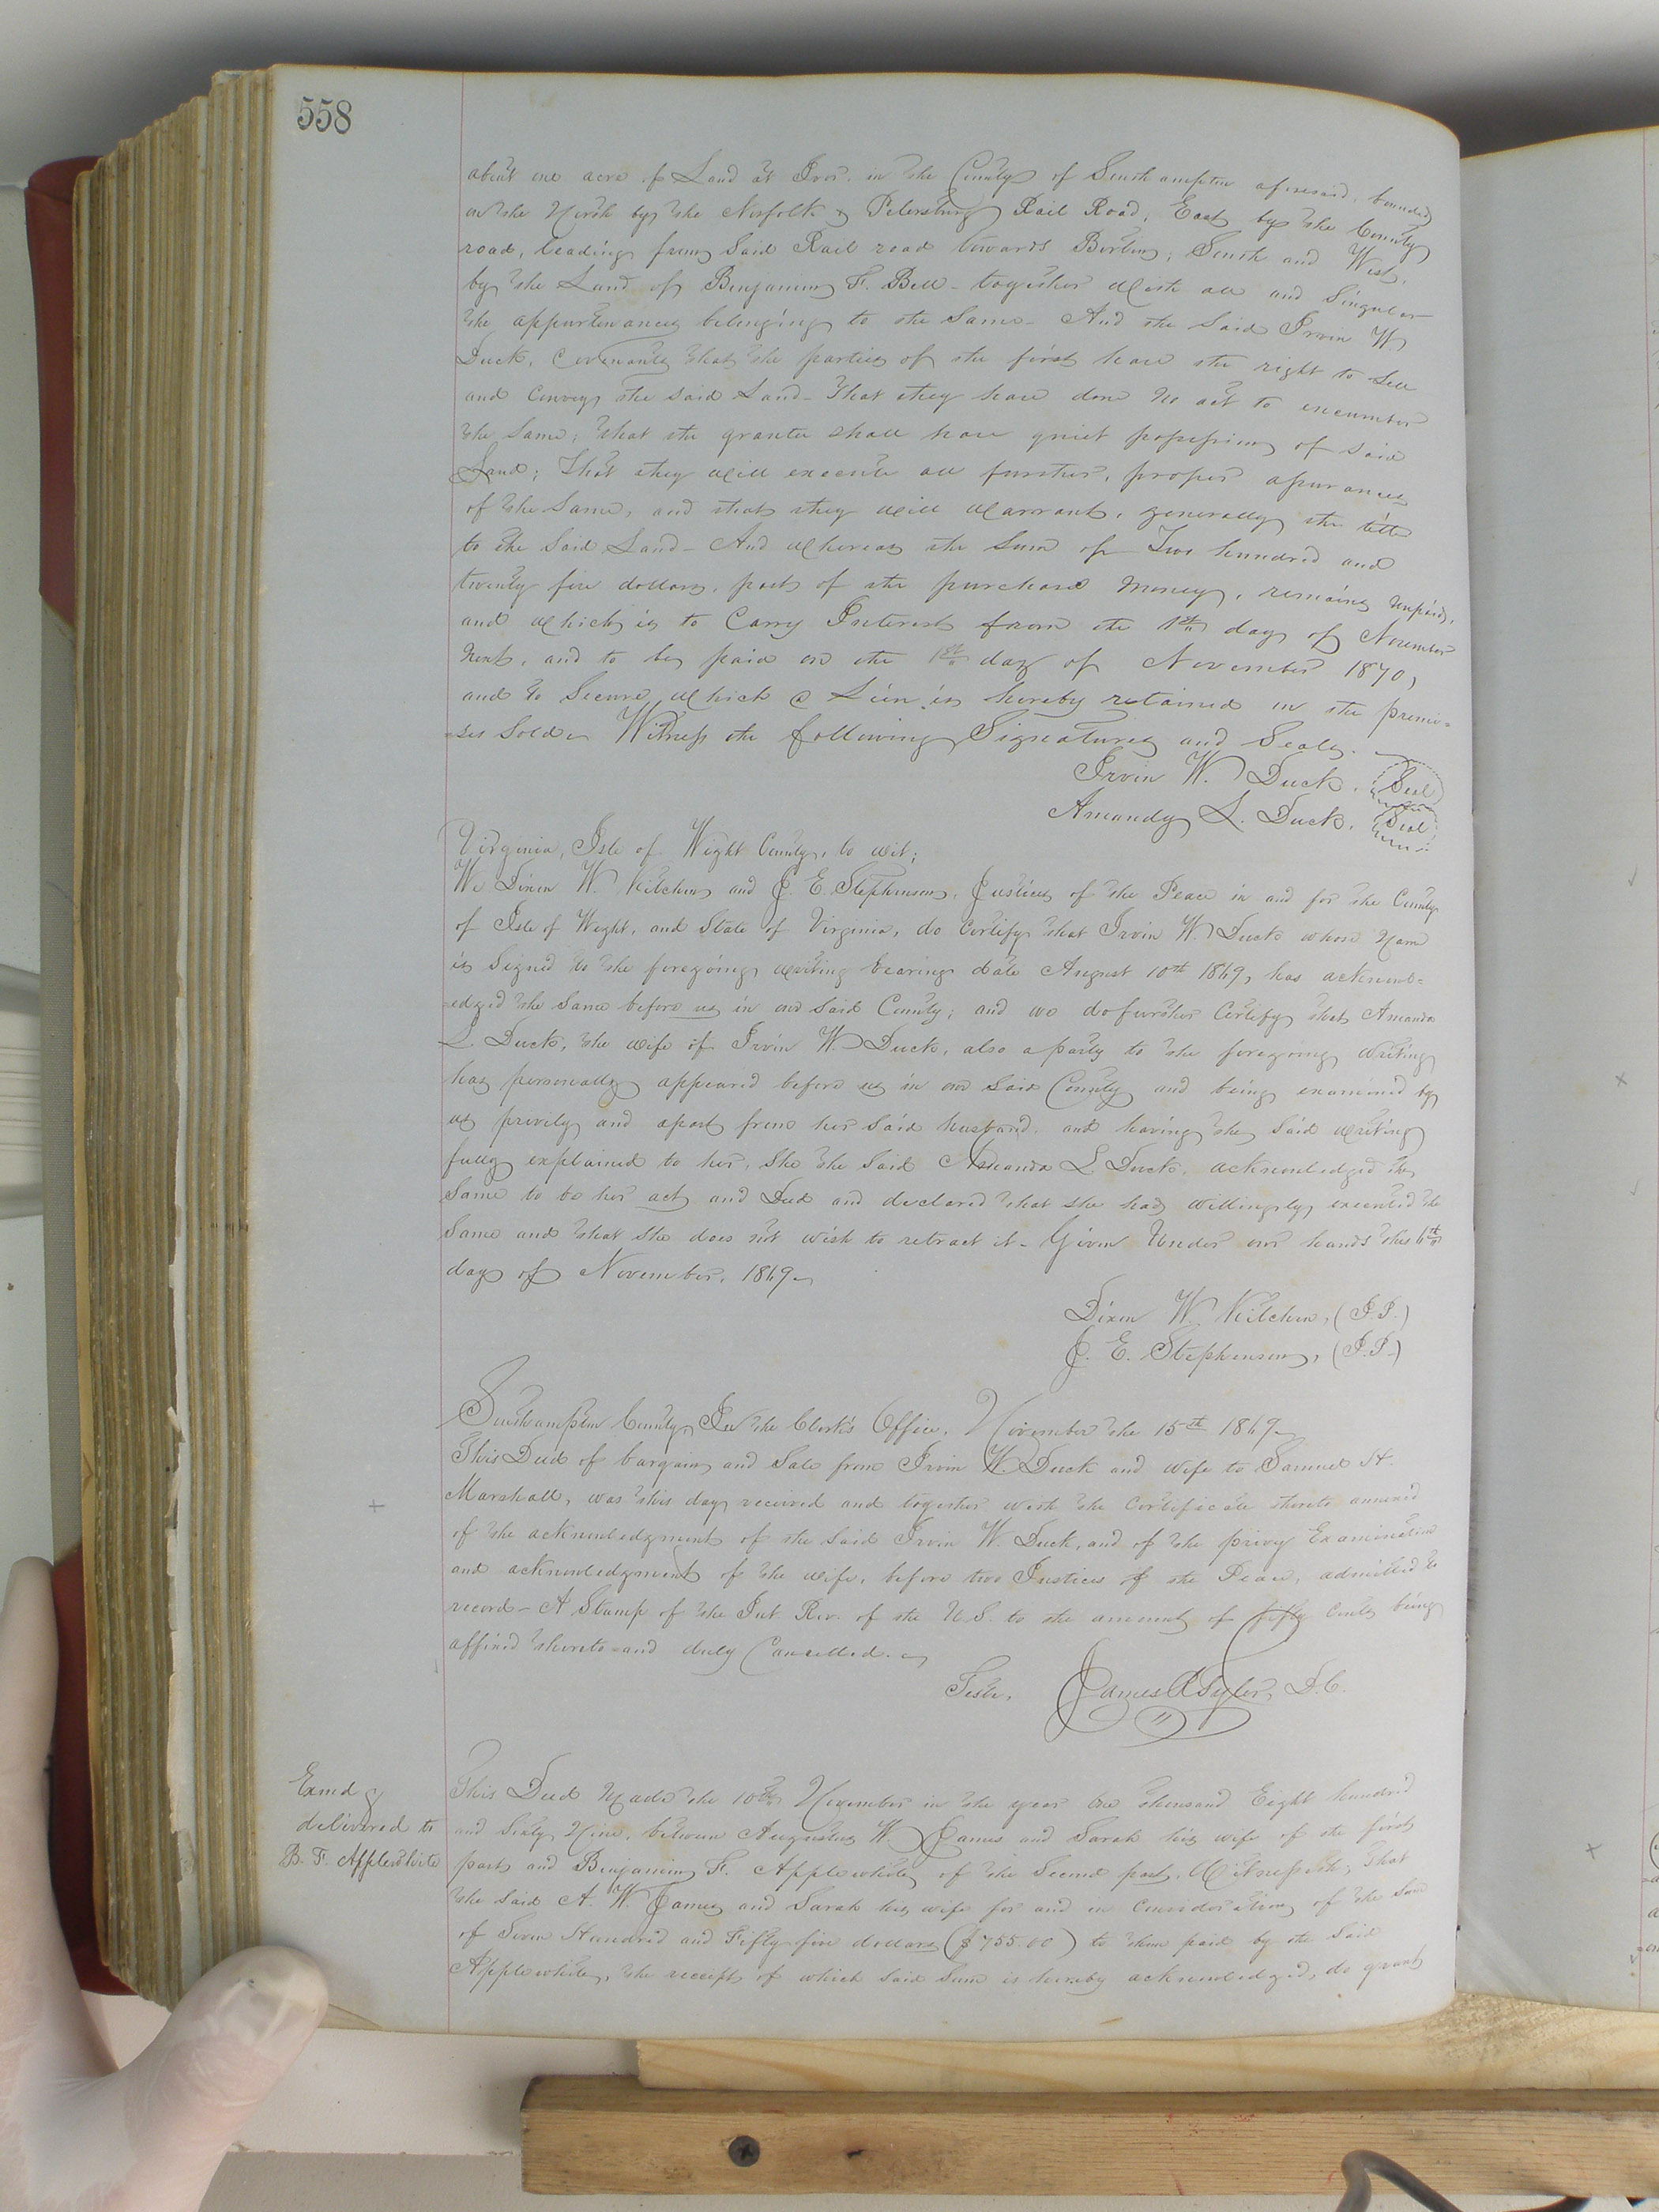 558
about one acre of Land at Ivor. in the County of Southampton aforesaid, bounded
on the North by the Norfolk & Petersburg Rail Road, East by the County
road, leading from Said Rail road towards Berlin; South and West,
by the Land of Benjamin F. Bell - together with all and Singular
the appurtenances belonging to the Same - And the Said Irvin W.
Duck, Covenants that the parties of the first have the right to Sell
and Convey the said Land - That they have done no act to encumber
the Same; that the grantee shall have quiet possession of said
Land; That they will execute all further, proper assurances
of the Same, and that they will warrant, generally the title
to the Said Land - And whereas the Sum of Two hundred and
twenty five dollars, part of the purchase money, remains unpaid,
and which is to Carry Interest from the 1st day of November
Next, and to be paid on the 1st day of November 1870,
and to Secure which a Lien is hereby retained in the premi=
=ses Sold - Witness the following Signatures and Seals.
Irvin W. Duck, Seal
Amanda L. Duck, Seal
Virginia, Isle of Wight County, to wit;
We Dixon W. Kitchen and J. E. Stephenson, Justices of the Peace in and for the County
of Isle of Wight, and State of Virginia, do Certify that Irvin W. Duck whose Name
is Signed to the foregoing writing bearing date August 10th 1869, has acknowl=
=edged the Same before us in our Said County; and we do further Certify that Amanda
L. Duck, the wife of Irvin W. Duck, also a party to the foregoing writing
has personally appeared before us in our Said County and being examined by
us privily and apart from her Said husband. and having the Said writing
fully explained to her, She the Said Amanda L. Duck, acknowledged the
Same to be her act and Deed and declared that She had willingly executed the
Same and that She does not wish to retract it - Given Under our hands this 6th
day of November, 1869
Dixon W. Kitchen, (J.P.)
J. E. Stephenson, (J.P.)
Southampton County, In the Clerk's Office, November the 15th 1869
This Deed of bargain and Sale from Irvin W. Duck and wife to Samuel H.
Marshall, was this day received and together with the Certificate thereto annexed
of the acknowledgment of the Said Irvin W. Duck, and of the privy Examination
and acknowledgment of the wife, before two Justices of the Peace, admitted to
record - A Stamp of the Int Rev. of the U.S. to the amount of fifty Cents being
affixed thereto and duly Cancelled.
Teste, James R Tyler, D.C.
Exmd &
delivered to
B. F. Applewhite
This Deed Made the 10th November in the year One thousand Eight hundred
and Sixty Nine, between Augustus W. James and Sarah his wife of the first
part and Benjamin F. Applewhite of the Second part, Witnesseth; That
the Said A. W. James and Sarah his wife for and in Consideration of the Sum
of Seven Hundred and Fifty-five dollars ($755.00) to them paid by the Said
Applewhite, the receipt of which Said Sum is hereby acknowledged, do grant